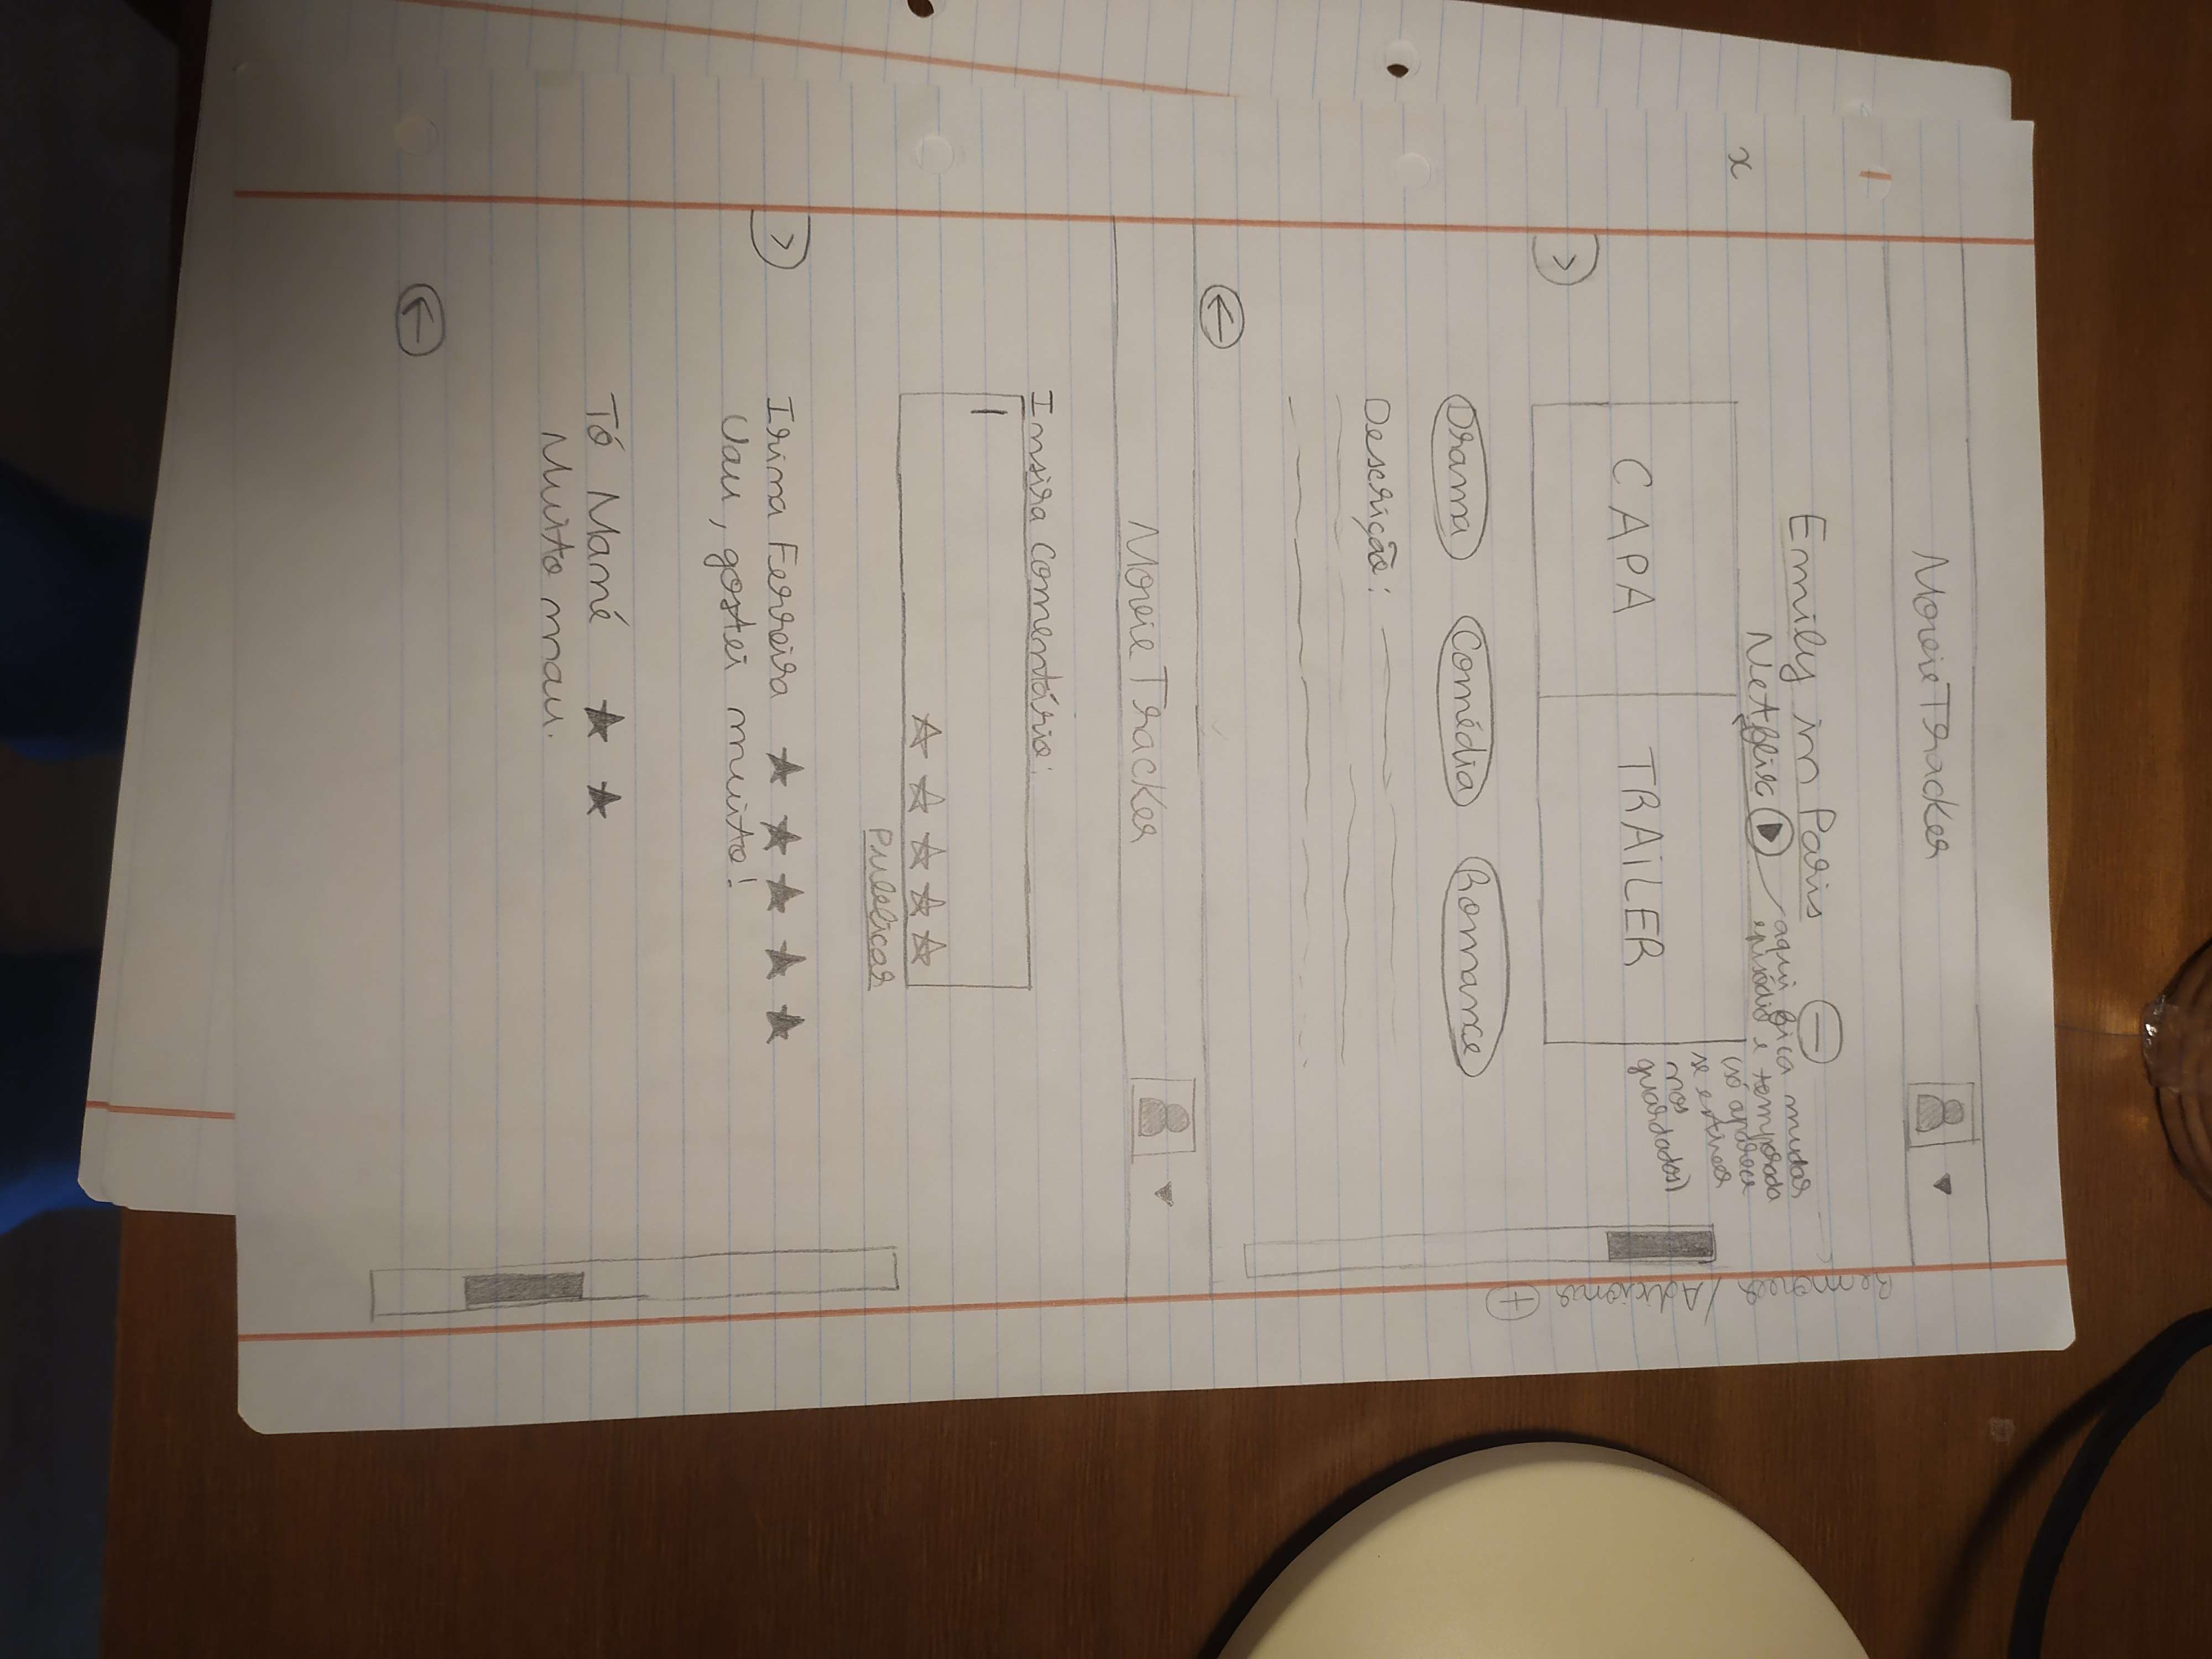 MovieTracker
Emily in Paris
Netflix
aqui fica mudar
episódio e temporada
(só aparece
se estiver
nos
guardados)
Remover / Adicionar +
x
CAPA
TRAILER
>
Drama
Comédia
Romance
Descrição:
MovieTracker
Insira Comentário:
Publicar
>
Irina Ferreira
Uau, gostei muito!
Tó Mané
Muito mau.